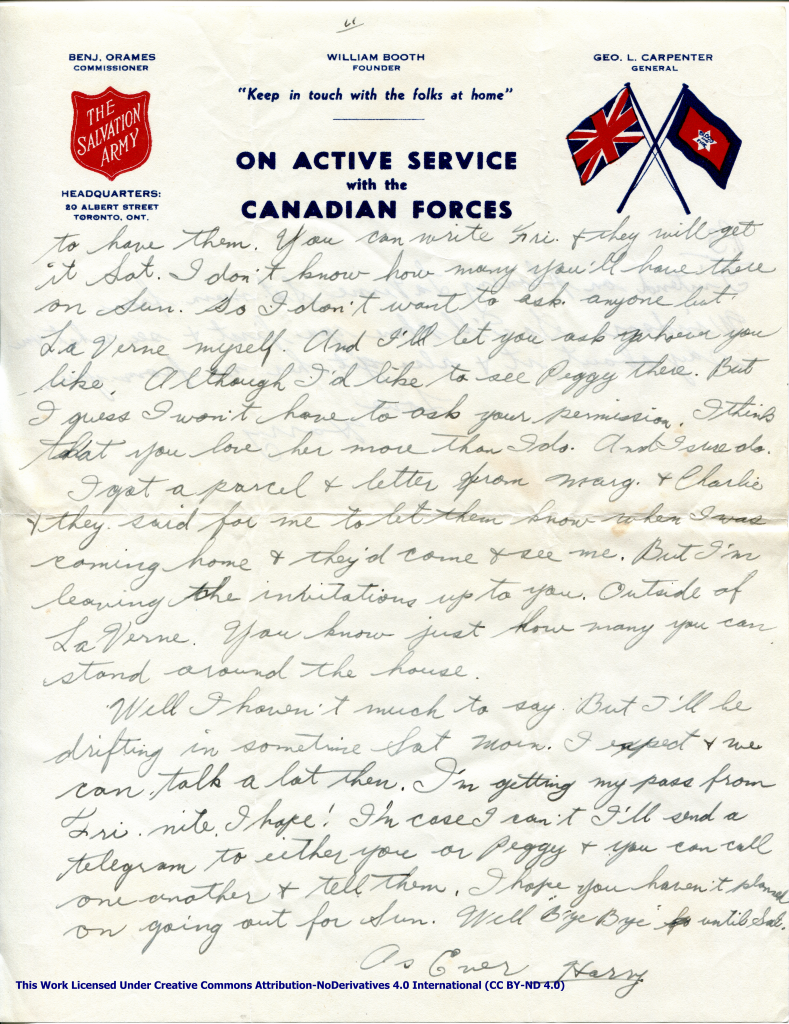 "
BENJ. ORAMES
COMMISSIONER
WILLIAM BOOTH
FOUNDER
GEO. L. CARPENTER
GENERAL
"Keep in touch with the folks at home"
THE
SALVATION
ARMY
ON ACTIVE SERVICE
with the
CANADIAN FORCES
HEADQUARTERS:
20 ALBERT STREET
TORONTO, ONT.
to have them. You can write Fri. & they will get
it Sat. I don't know how many you'll have there
on Sun. So I don't want to ask anyone but
La Verne myself. And I'll let you ask whoever you
like. Although I'd like to see Peggy there. But
I guess I won't have to ask your permission. I think
that you love her more than I do. And I sure do.
I got a parcel & letter from Marg. & Charlie
& they said for me to let them know when I was
coming home & they'd come & see me. But I'm
leaving the invitations up to you. Outside of
La Verne. You know just how many you can
stand around the house.
Well I haven't much to say. But I'll be
drifting in sometime Sat Morn. I expect & we
can talk a lot then. I'm getting my pass from
Fri. nite, I hope! I'm case I can't I'll send a
telegram to either you or Peggy & you can call
one another & tell them. I hope you haven't planned
on going out for Sun. Well "Bye Bye" until Sat.
As Ever Harry
This Work Licensed Under Creative Commons Attribution-NoDerivatives 4.0 International (CC BY-ND 4.0)